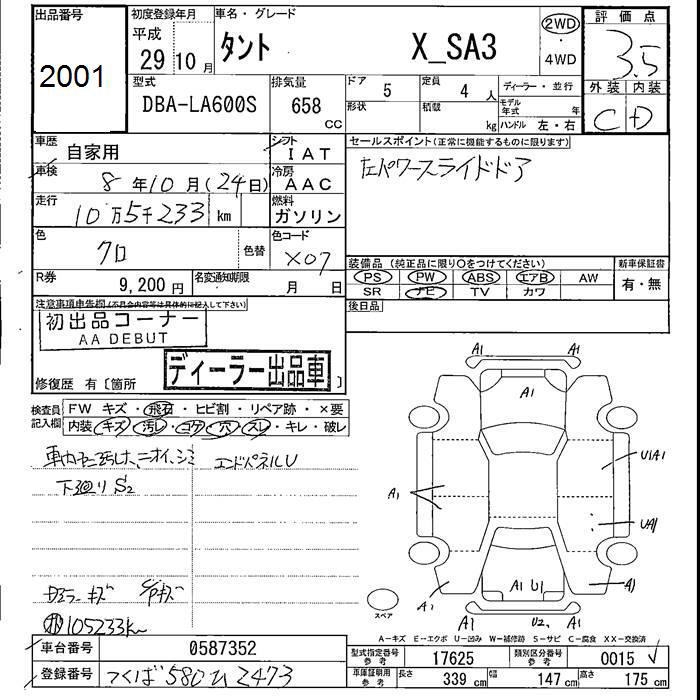 出品番号
2001
初度登録年月
平成
29 10 月
車名・グレード
タント X_SA3
2WD
・
4WD
評価点
3.5
外装 内装
C D
型式
DBA-LA600S
排気量
658 CC
ドア 5
形状
定員 4 人
積載 kg
ディーラー・並行
モデル年式 年
ハンドル 左・右
車歴
自家用
シフト
IAT
セールスポイント(正常に機能するものに限ります)
左パワースライドドア
車検
8 年 10 月 (24日)
冷房
AAC
走行
10万5千233 km
燃料
ガソリン
色
クロ
色替
色コード
X07
装備品 (純正品に限り〇をつけてください)
PS PW ABS エアB AW
SR ナビ TV カワ
新車保証書
有・無
R券
9,200 円
名変通知期限
月 日
後日品
注意事項車告欄(不具合内容等は具体的に記入して下さい)
初出品コーナー
AA DEBUT
ディーラー出品車
修復歴 有〔箇所 〕
検査員記入欄
FW キズ・飛石・ヒビ割・リペア跡・×要
内装 キズ・汚レ・コゲ・穴・スレ・キレ・破レ
車内ヤニ汚れ、ニオイ、シミ
エンドパネルU
下廻りS2
105233km
A1 A1
A1
U1A1
A1
UA1
A1 U1
A1
A1
A1 U2 A1
スペア
A-キズ E-エクボ U-凹み W-補修跡 S-サビ C-腐食 XX-交換済
車台番号
0587352
登録番号
つくば 580 ひ 2473
型式指定番号
参考
17625
類別区分番号
参考
0015
車庫証明用
参考
長さ 339 cm
幅 147 cm
高さ 175 cm